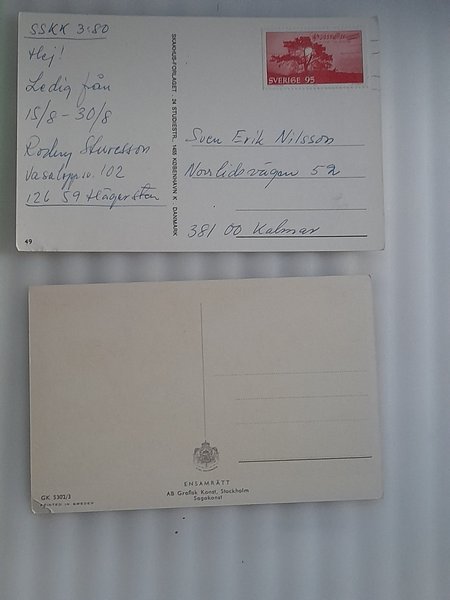 SSKK 3:80
Hej!
Ledig från
15/8 - 30/8
Rodny Sturesson
Vasaloppsv. 102
126 59 Hägersten
49
SKAKHUS-FORLAGET 24 STUDIESTR. 1455 KØBENHAVN K - DANMARK
SVERIGE 95
Sven Erik Nilsson
Norrlidsvägen 52
381 00 Kalmar
GK 3302/3
PRINTED IN SWEDEN
ENSAMRÄTT
AB Grafisk Konst, Stockholm
Sagakonst